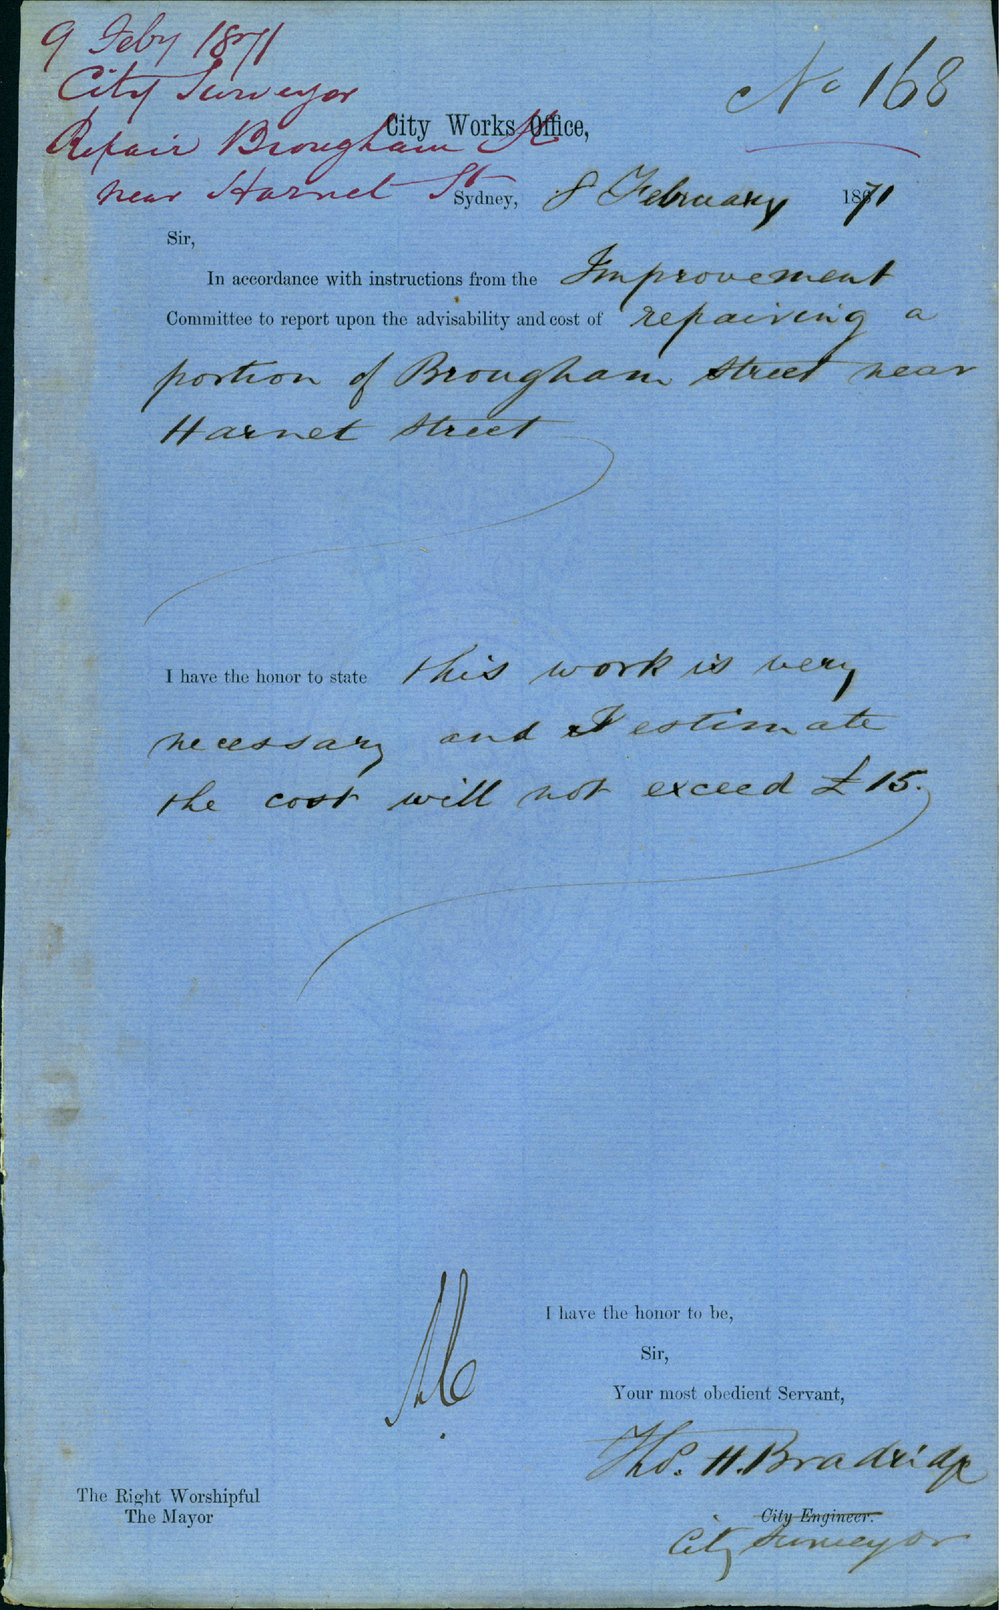 9 Feby 1871
City Surveyor
Repair Brougham St
near Harnet St
No 168
City Works Office,
Sydney, 8 February 1871
Sir,
In accordance with instructions from the Improvement
Committee to report upon the advisability and cost of repairing a
portion of Brougham Street near
Harnet Street
I have the honor to state this work is very
necessary and I estimate
the cost will not exceed £15.
I have the honor to be,
Sir,
Your most obedient Servant,
Thos. H. Bradridge
City Engineer.
City Surveyor
The Right Worshipful
The Mayor